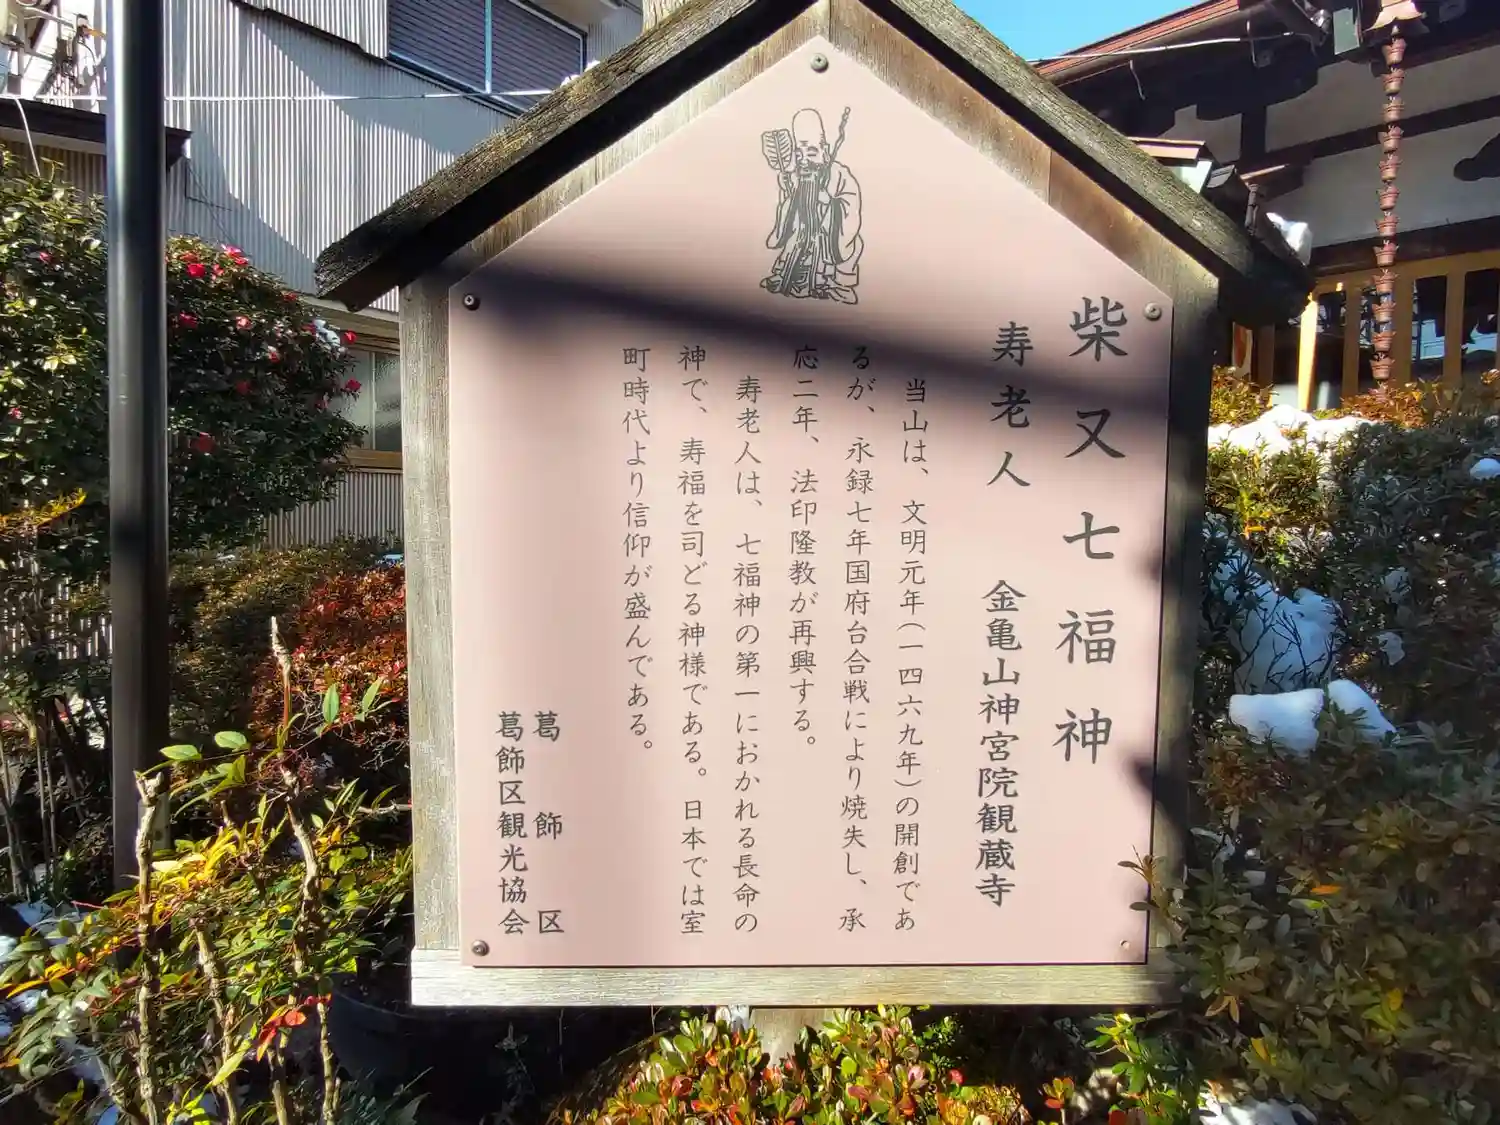 柴又七福神
寿老人 金亀山神宮院観蔵寺
当山は、文明元年(一四六九年)の開創であ
るが、永録七年国府台合戦により焼失し、承
応二年、法印隆教が再興する。
寿老人は、七福神の第一におかれる長命の
神で、寿福を司どる神様である。日本では室
町時代より信仰が盛んである。
葛飾区
葛飾区観光協会